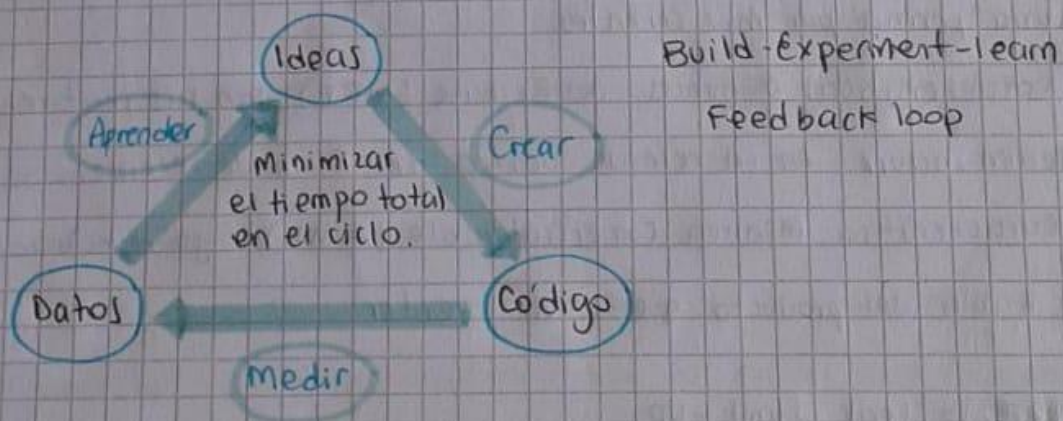 Ideas
Build-Experiment-learn
Feedback loop
Aprender
Crear
Minimizar
el tiempo total
en el ciclo.
Datos
Código
Medir